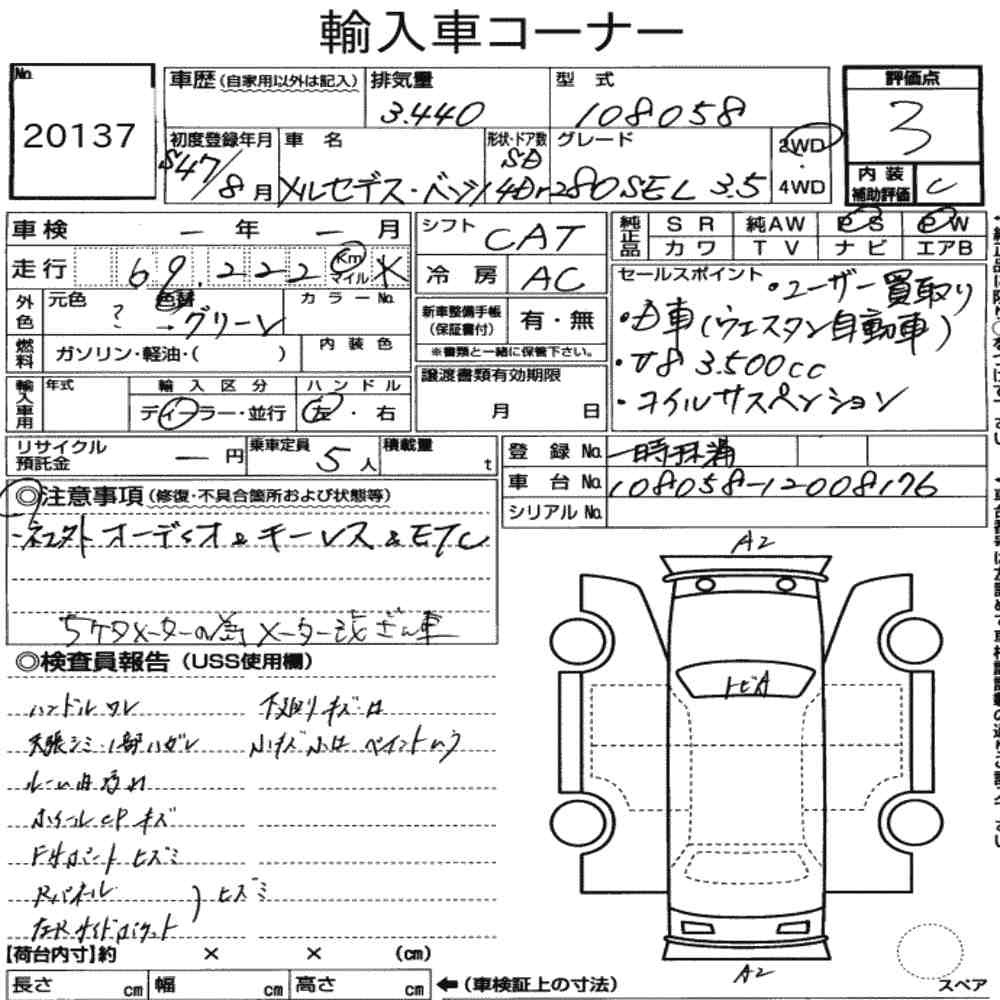 輸入車コーナー
No. 20137
車歴(自家用以外は記入) 排気量 3.440 型式 108058 評価点 3
初度登録年月 S47/8月 車名 メルセデス・ベンツ 形状・ドア数 SD 4Dr グレード 280SEL 3.5 2WD・4WD 内装補助評価 C
車検 ー年 ー月 シフト CAT 純正品 SR 純AW PS PW
走行 69.222 Km マイル 冷房 AC カワ TV ナビ エアB
外色 元色 ? 色替 →グリーン カラーNo. 新車整備手帳(保証書付) 有・無
※書類と一緒に保管下さい。
燃料 ガソリン・軽油・( ) 内装色
輸入車用 年式 輸入区分 ディーラー・並行 ハンドル 左・右 譲渡書類有効期限 月 日
セールスポイント ・ユーザー買取り
・D車(ウエスタン自動車)
・V8 3.500cc
・コイルサスペンション
リサイクル預託金 ー円 乗車定員 5人 積載量 t
登録No. 一時抹消
車台No. 108058-12008176
シリアルNo.
◎注意事項(修復・不具合箇所および状態等)
オーディオ & キーレス & ETC
5ケタメーターの為 メーター改ざん車
◎検査員報告(USS使用欄)
ハンドルワレ 下廻りキズ凹
天張シミ・1部ハガレ 小キズ小凹 ペイントムラ
ルーム内汚れ
ホイールCPキズ
Fサポート ヒズミ
Rパネル
左Rサイドポケット ) ヒズミ
A2
トビA
A2
【荷台内寸】約 × × (cm)
長さ cm 幅 cm 高さ cm ←(車検証上の寸法)
スペア